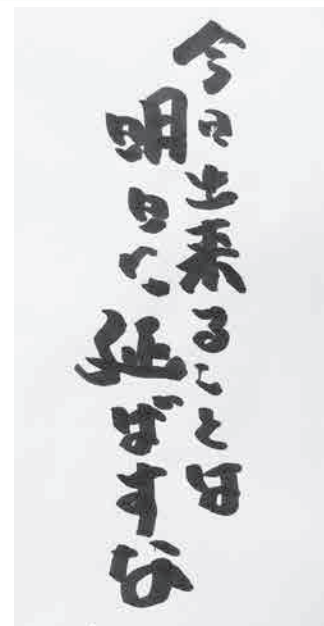 今日出来ることは
明日に延ばすな